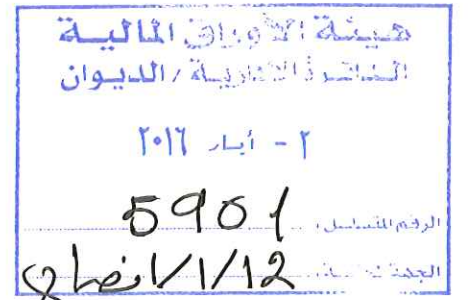 هيئة الأوراق المالية
الدائرة الادارية / الديوان
٢ - أيار ٢٠١٦
الرقم المتسلسل 5901
الجهة افصاح/1/12